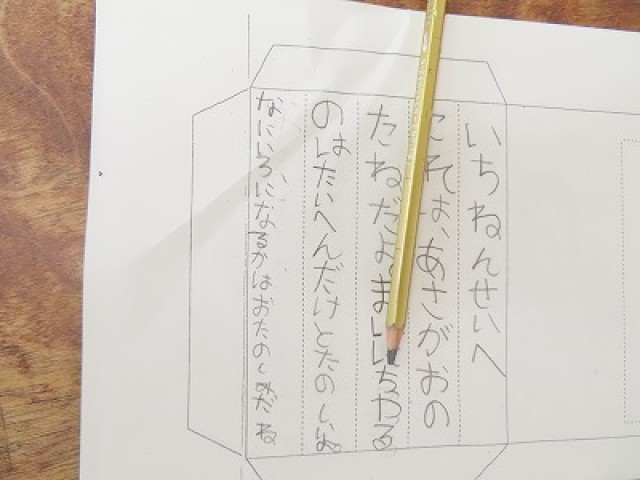 いちねんせいへ
これは、あさがおの
たねだよ。まいにちやる
のはたいへんだけどたのしいよ。
なにいろになるかはおたのしみだね